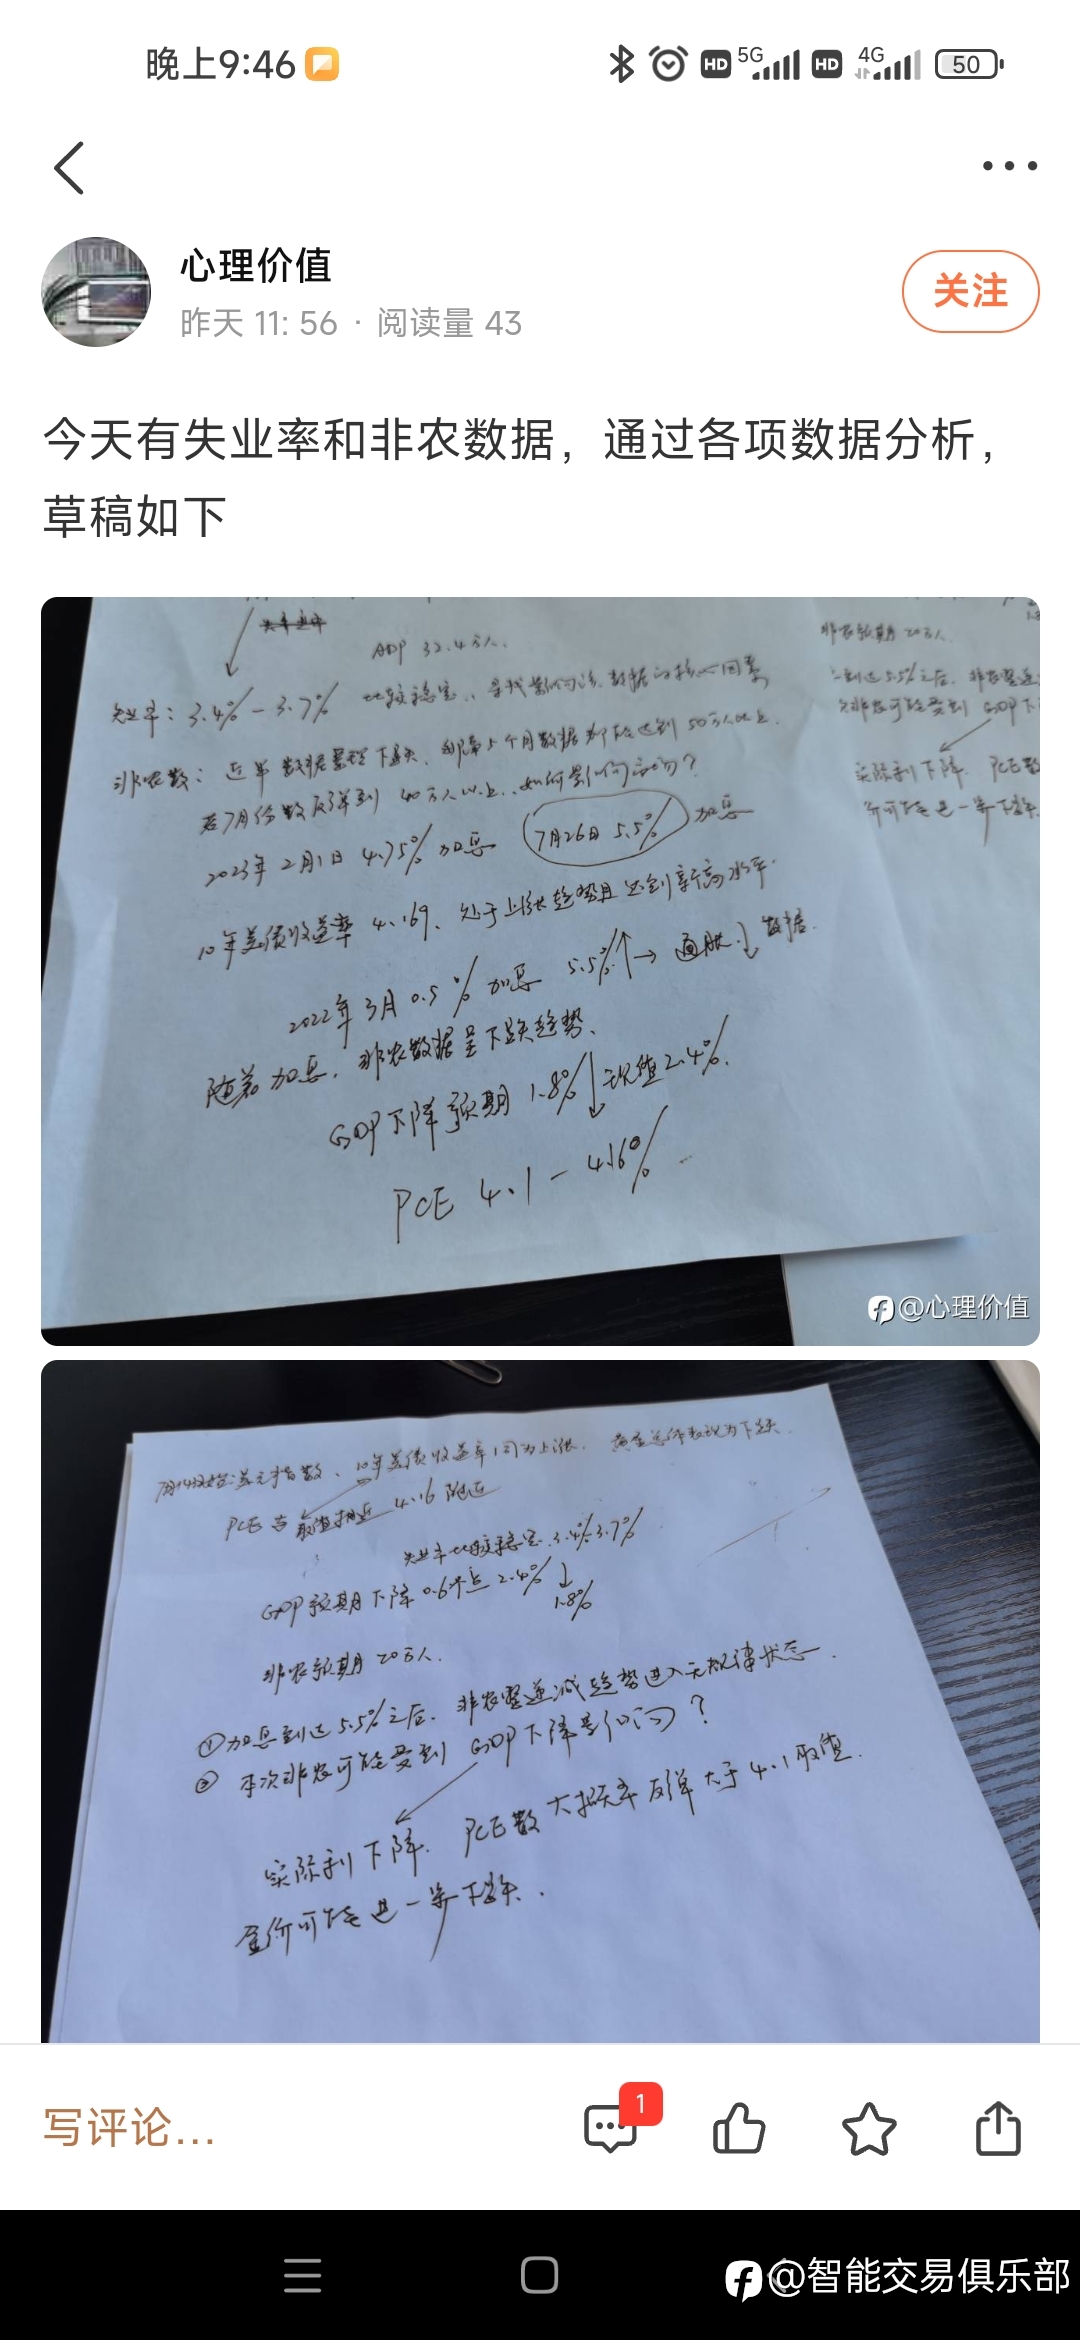 晚上9:46
HD 5G HD 4G 50
心理价值
昨天 11: 56 · 阅读量 43
关注
今天有失业率和非农数据，通过各项数据分析，
草稿如下
ADP 32.4万人.
失业率：3.4%-3.7% 比较稳定，寻找影响该数据的核心因素
非农数：近半数据呈现下跌、
若7月份数反弹到 40万人以上，如何影响
2023年2月1日 4.75% 加息 7月26日 5.5% 加息
10年美债收益率 4.169、处于上涨趋势且达到新高水平.
2022年3月 0.5% 加息 5.5%↑→通胀↓数据.
随着加息，非农数据呈下跌趋势、
GDP下降预期 1.8%↓现值2.4%.
PCE 4.1 - 4.16%
非农预期 20万人.
实际利下降. PCE数
@心理价值
美元指数、10年美债收益率同为上涨，黄金总体表现为下跌.
PCE与前值相近 4.16 附近
失业率比较稳定 3.4%-3.7%
GDP预期下降 0.6%点 2.4%↓
1.8%
非农预期 20万人.
①加息到达5.5%之后，非农呈递减趋势进入无规律状态.
② 本次非农可能受到 GDP下降影响？
实际利下降. PCE数大概率反弹大于4.1取值.
金价可能进一步下跌.
写评论...
1
@智能交易俱乐部